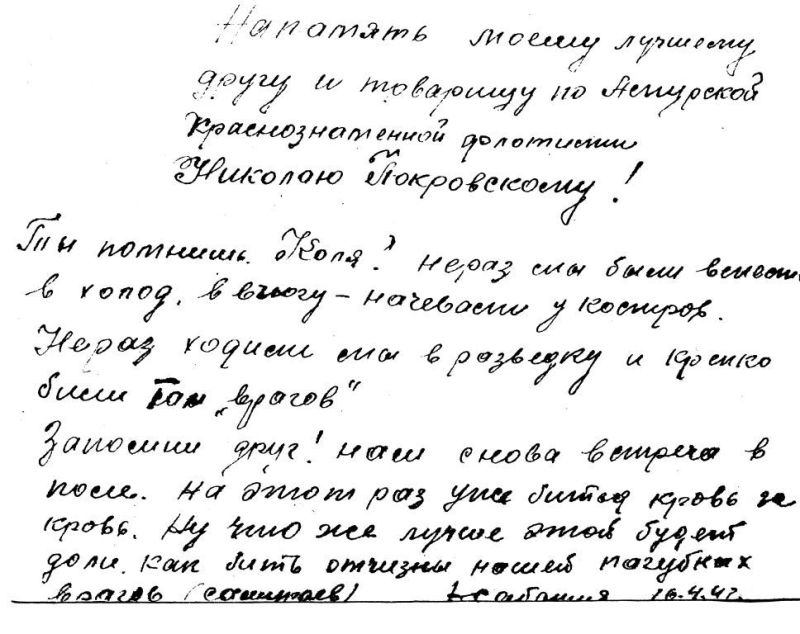 На память моему лучшему
другу и товарищу по Амурской
Краснознаменной флотилии
Николаю Покровскому!
Ты помнишь Коля? нераз мы были вместе
в холод, в вьюгу - начевали у костров.
Нераз ходили мы в разведку и крепко
били там „врагов“
Запомни друг! нам снова встреча в
поле. На этот раз уже битва кровь за
кровь. Ну что же лучше этой будет
доли. как бить отчизны нашей пагубных
врагов (самураев) 16.4.42.